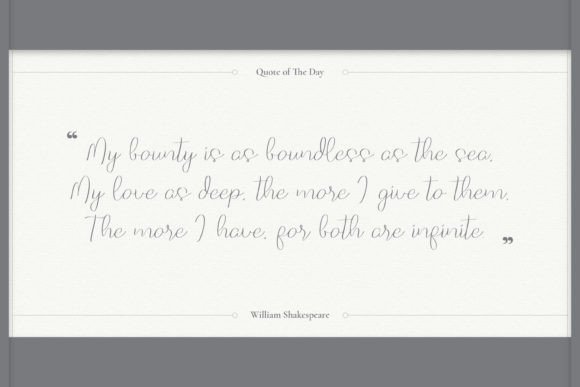 Quote of The Day
“ My bounty is as boundless as the sea,
My love as deep, the more I give to them,
The more I have, for both are infinite ”
William Shakespeare